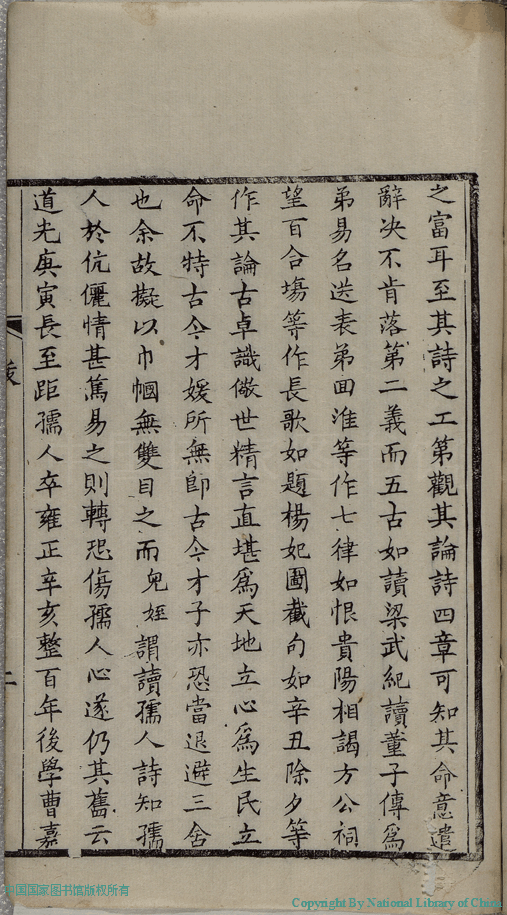 之富耳至其詩之工第觀其論詩四章可知其命意遣
辭决不肯落第二義而五古如讀梁武紀讀董子傳爲
弟易名送表弟回淮等作七律如恨貴陽相謁方公祠
望百合塲等作長歌如題楊妃圖截句如辛丑除夕等
作其論古卓識儆世精言直堪爲天地立心爲生民立
命不特古今才媛所無卽古今才子亦恐當退避三舍
也余故擬以巾幗無雙目之而兒姪謂讀孺人詩知孺
人於伉儷情甚篤易之則轉恐傷孺人心遂仍其舊云
道光庚寅長至距孺人卒雍正辛亥整百年後學曹嘉
二
中国国家图书馆版权所有
Copyright By National Library of China